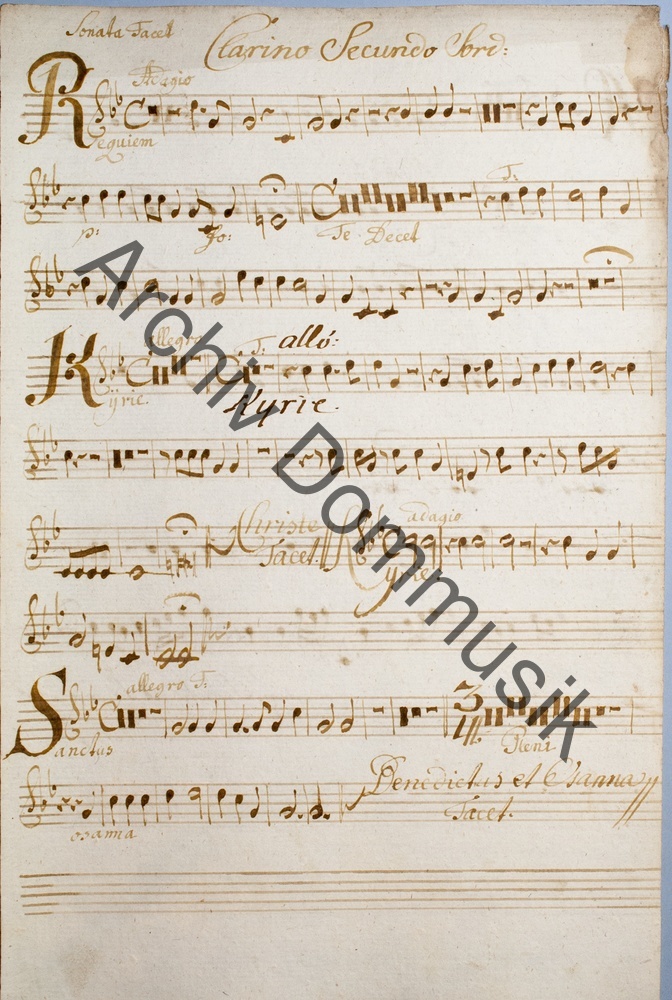 Sonata Tacet
Clarino Secundo Sord:
Adagio
Requiem
T:
p: fo: Te Decet
allegro T: alló:
Kyrie. Kyrie.
Christe
Tacet.
adagio
Kyrie
allegro T:
Sanctus
3
4
Pleni
Benedictus et Osanna
Tacet.
osanna
Archiv Dommusik